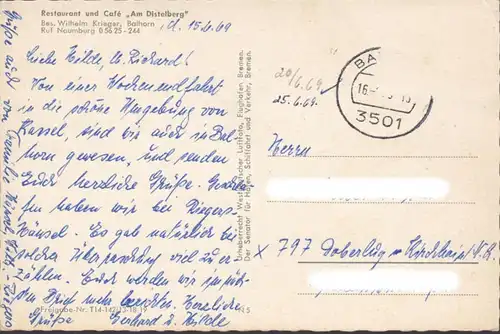 Restaurant und Café „Am Distelberg"
Bes. Wilhelm Krieger, Balhorn
Ruf Naumburg 05625 - 244
d. 15.6.69
Liebe Hilde, u. Richard!
Von einer Wochenendfahrt
in die schöne Umgebung von
Kassel, sind wir auch in Bal-
horn gewesen, und senden
Euch herzliche Grüße. Gestern
haben wir bei Riegers
Es gab natürlich bei
solcher Überraschung viel zu er-
zählen. Euch werden wir im näch-
sten Brief mehr berichten. Herzliche
Grüße Gerhard u. Hilde
Grüße auch von Familie
20/6.69
25.6.69.
BA
16.
3501
Herrn
x 797 Doberlug-Kirchhain N.L.
Urheberrecht Westfälischer Luftfoto, Flughafen Bremen.
Der Senator für Häfen, Schiffahrt und Verkehr, Bremen.
Freigabe-Nr.